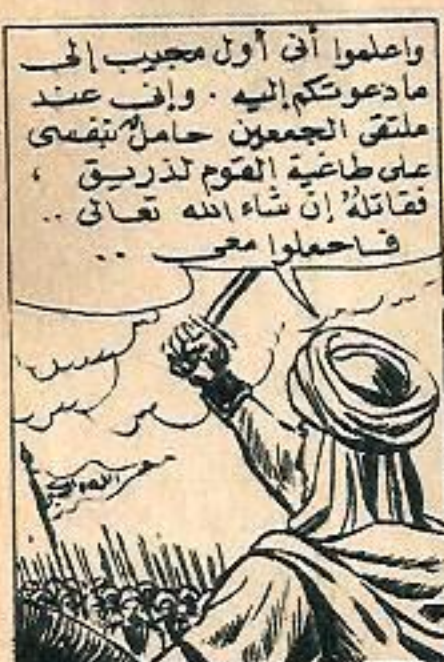 واعلموا أنى أول مجيب إلى
ما دعوتكم إليه . وإنى عند
ملتقى الجمعين حاملٌ بنفسى
على طاغية القوم لذريق ،
فقاتلهُ إن شاء الله تعالى ..
فاحملوا معى ..
الله